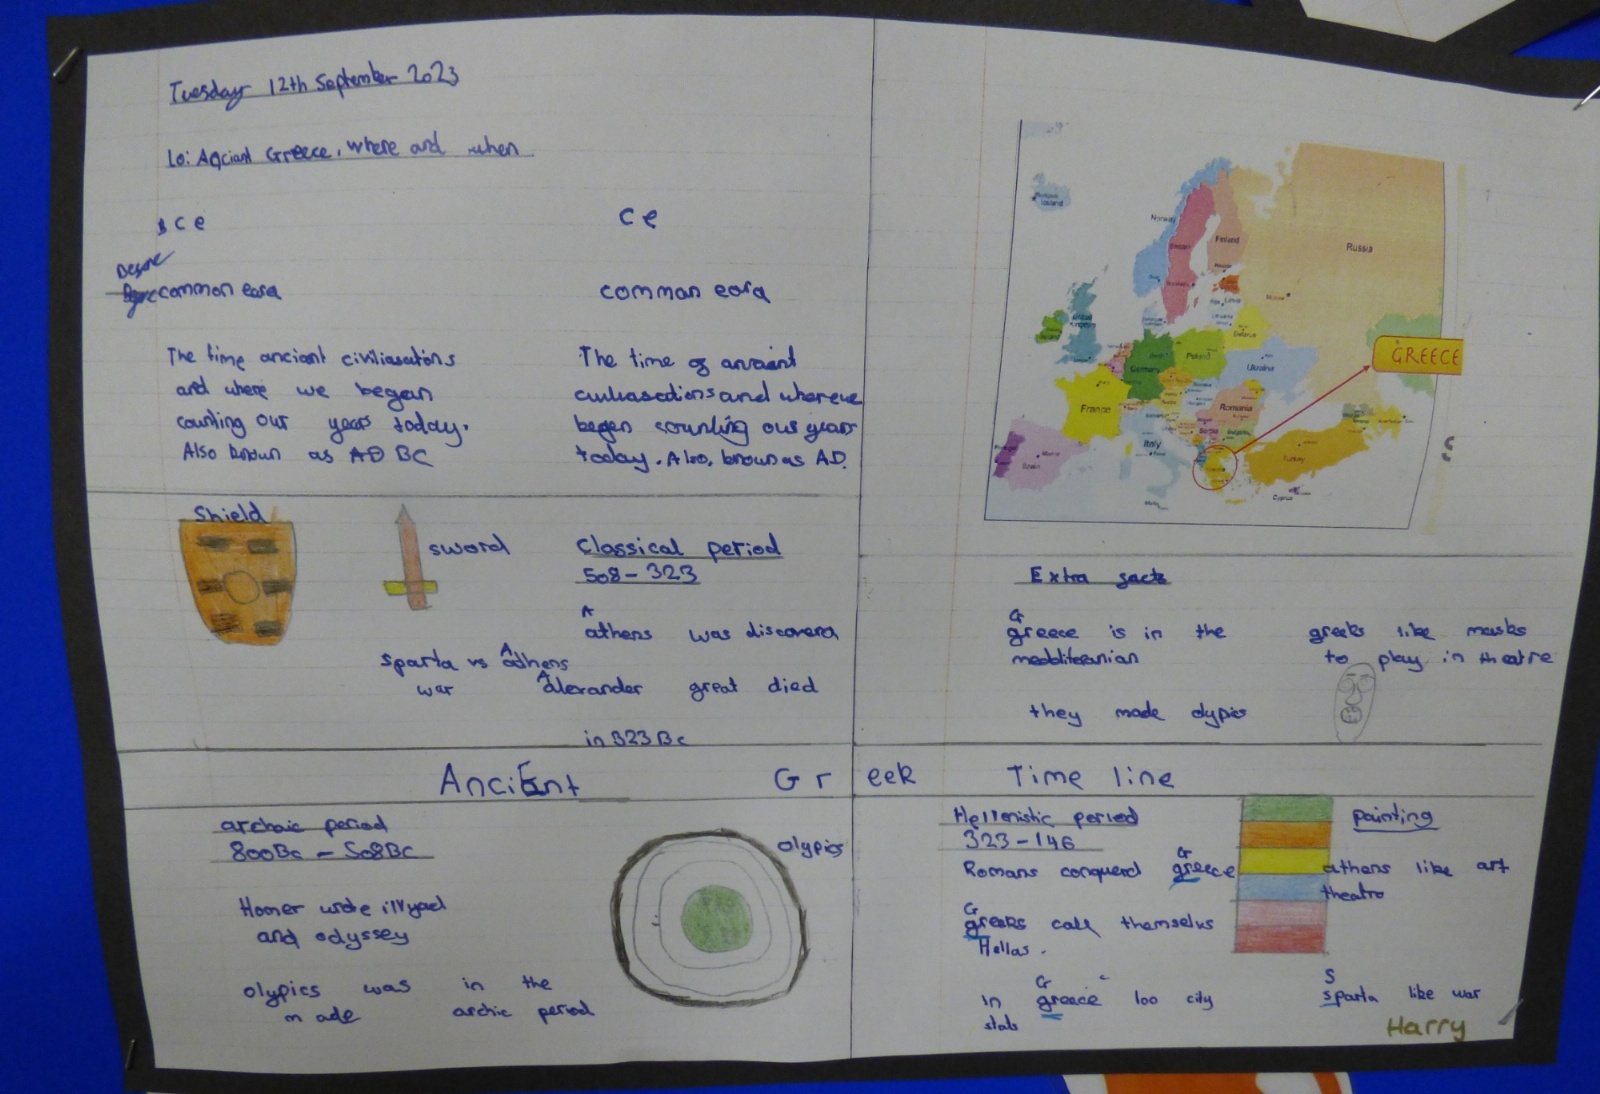 Tuesday 12th September 2023
Lo: Anciant Greece, where and when
BCe
Before
common eara
The time anciant civiliasations
and where we began
counting our years today.
Also known as AD BC
Ce
common eara
The time of anciant
civiliasations and where we
began counting our years
today. Also, known as AD.
Iceland
Norway
Sweden
Finland
Russia
United Kingdom
Belarus
Poland
Germany
Ukraine
France
Romania
Serbia
Italy
Spain
Portugal
Turkey
Cyprus
GREECE
Shield
sword
sparta vs Aathens
war
Classical period
508-323
A
athens was discovera
A
alexander great died
in 323 Bc
Extra facts
G
greece is in the
meditteranian
they made olypics
greeks like masks
to play in theatre
AnciEnt Greek Time line
archaic period
800Bc - 508BC
Homer wrote illyad
and odyssey
olypics was in the
made archic period
olypics
Hellenistic period
323-146
G
Romans conquerd greece
G
greeks call themselvs
Hellas.
G
In greece 100 city
stats
painting
athens like art
theatro
S
sparta like war
Harry